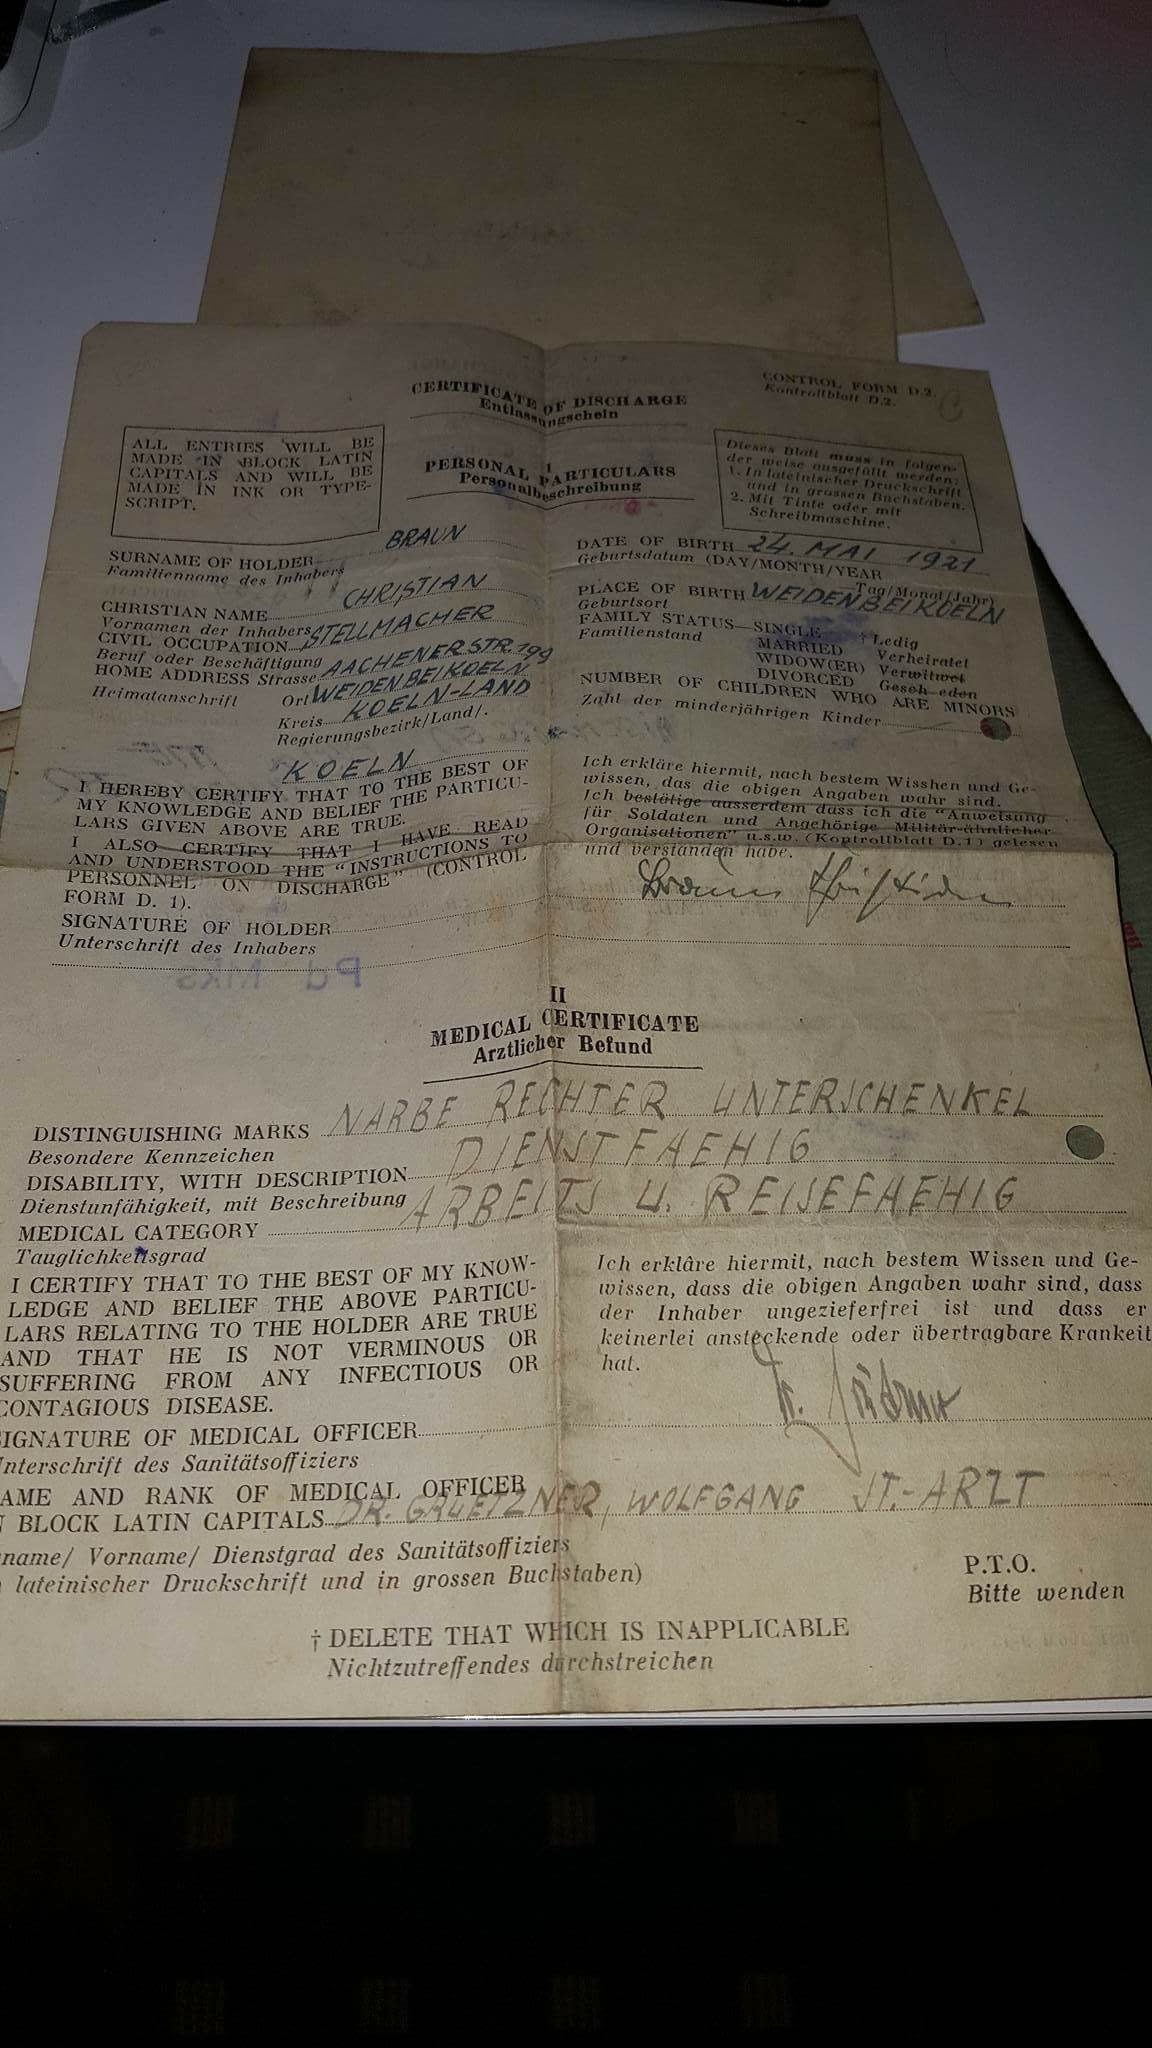 CONTROL FORM D.2.
Kontrollblatt D.2.
CERTIFICATE OF DISCHARGE
Entlassungschein
ALL ENTRIES WILL BE
MADE IN BLOCK LATIN
CAPITALS AND WILL BE
MADE IN INK OR TYPE-
SCRIPT.
I
PERSONAL PARTICULARS
Personalbeschreibung
Dieses Blatt muss in folgen-
der weise ausgefüllt werden:
1. In lateinischer Druckschrift
und in grossen Buchstaben.
2. Mit Tinte oder mit
Schreibmaschine.
SURNAME OF HOLDER BRAUN
Familienname des Inhabers
CHRISTIAN NAME CHRISTIAN
Vornamen der Inhabers
CIVIL OCCUPATION STELLMACHER
Beruf oder Beschäftigung
HOME ADDRESS Strasse AACHENER STR. 199
Heimatanschrift Ort WEIDEN BEI KOELN
Kreis KOELN-LAND
Regierungsbezirk/Land/.
KOELN
DATE OF BIRTH 24. MAI 1921
Geburtsdatum (DAY/MONTH/YEAR
Tag/Monat/Jahr)
PLACE OF BIRTH WEIDEN BEI KOELN
Geburtsort
FAMILY STATUS—SINGLE † Ledig
Familienstand MARRIED Verheiratet
WIDOW(ER) Verwitwet
DIVORCED Gesch eden
NUMBER OF CHILDREN WHO ARE MINORS
Zahl der minderjährigen Kinder
I HEREBY CERTIFY THAT TO THE BEST OF
MY KNOWLEDGE AND BELIEF THE PARTICU-
LARS GIVEN ABOVE ARE TRUE.
I ALSO CERTIFY THAT I HAVE READ
AND UNDERSTOOD THE "INSTRUCTIONS TO
PERSONNEL ON DISCHARGE" (CONTROL
FORM D. 1).
SIGNATURE OF HOLDER
Unterschrift des Inhabers
Ich erkläre hiermit, nach bestem Wisshen und Ge-
wissen, das die obigen Angaben wahr sind.
Ich bestätige ausserdem dass ich die "Anweisung
für Soldaten und Angehörige Militär-ähnlicher
Organisationen" u.s.w. (Kontrollblatt D.1) gelesen
und verstanden habe.
Braun Christian
II
MEDICAL CERTIFICATE
Arztlicher Befund
DISTINGUISHING MARKS NARBE RECHTER UNTERSCHENKEL
Besondere Kennzeichen
DISABILITY, WITH DESCRIPTION DIENSTFAEHIG
Dienstunfähigkeit, mit Beschreibung
MEDICAL CATEGORY ARBEITS U. REISEFAEHIG
Tauglichkeitsgrad
I CERTIFY THAT TO THE BEST OF MY KNOW-
LEDGE AND BELIEF THE ABOVE PARTICU-
LARS RELATING TO THE HOLDER ARE TRUE
AND THAT HE IS NOT VERMINOUS OR
SUFFERING FROM ANY INFECTIOUS OR
CONTAGIOUS DISEASE.
Ich erklâre hiermit, nach bestem Wissen und Ge-
wissen, dass die obigen Angaben wahr sind, dass
der Inhaber ungezieferfrei ist und dass er
keinerlei ansteckende oder übertragbare Krankeit
hat.
SIGNATURE OF MEDICAL OFFICER
Unterschrift des Sanitätsoffiziers
AME AND RANK OF MEDICAL OFFICER
N BLOCK LATIN CAPITALS DR. GRUETZNER, WOLFGANG ST.-ARZT
name/ Vorname/ Dienstgrad des Sanitätsoffiziers
lateinischer Druckschrift und in grossen Buchstaben)
P.T.O.
Bitte wenden
† DELETE THAT WHICH IS INAPPLICABLE
Nichtzutreffendes durchstreichen